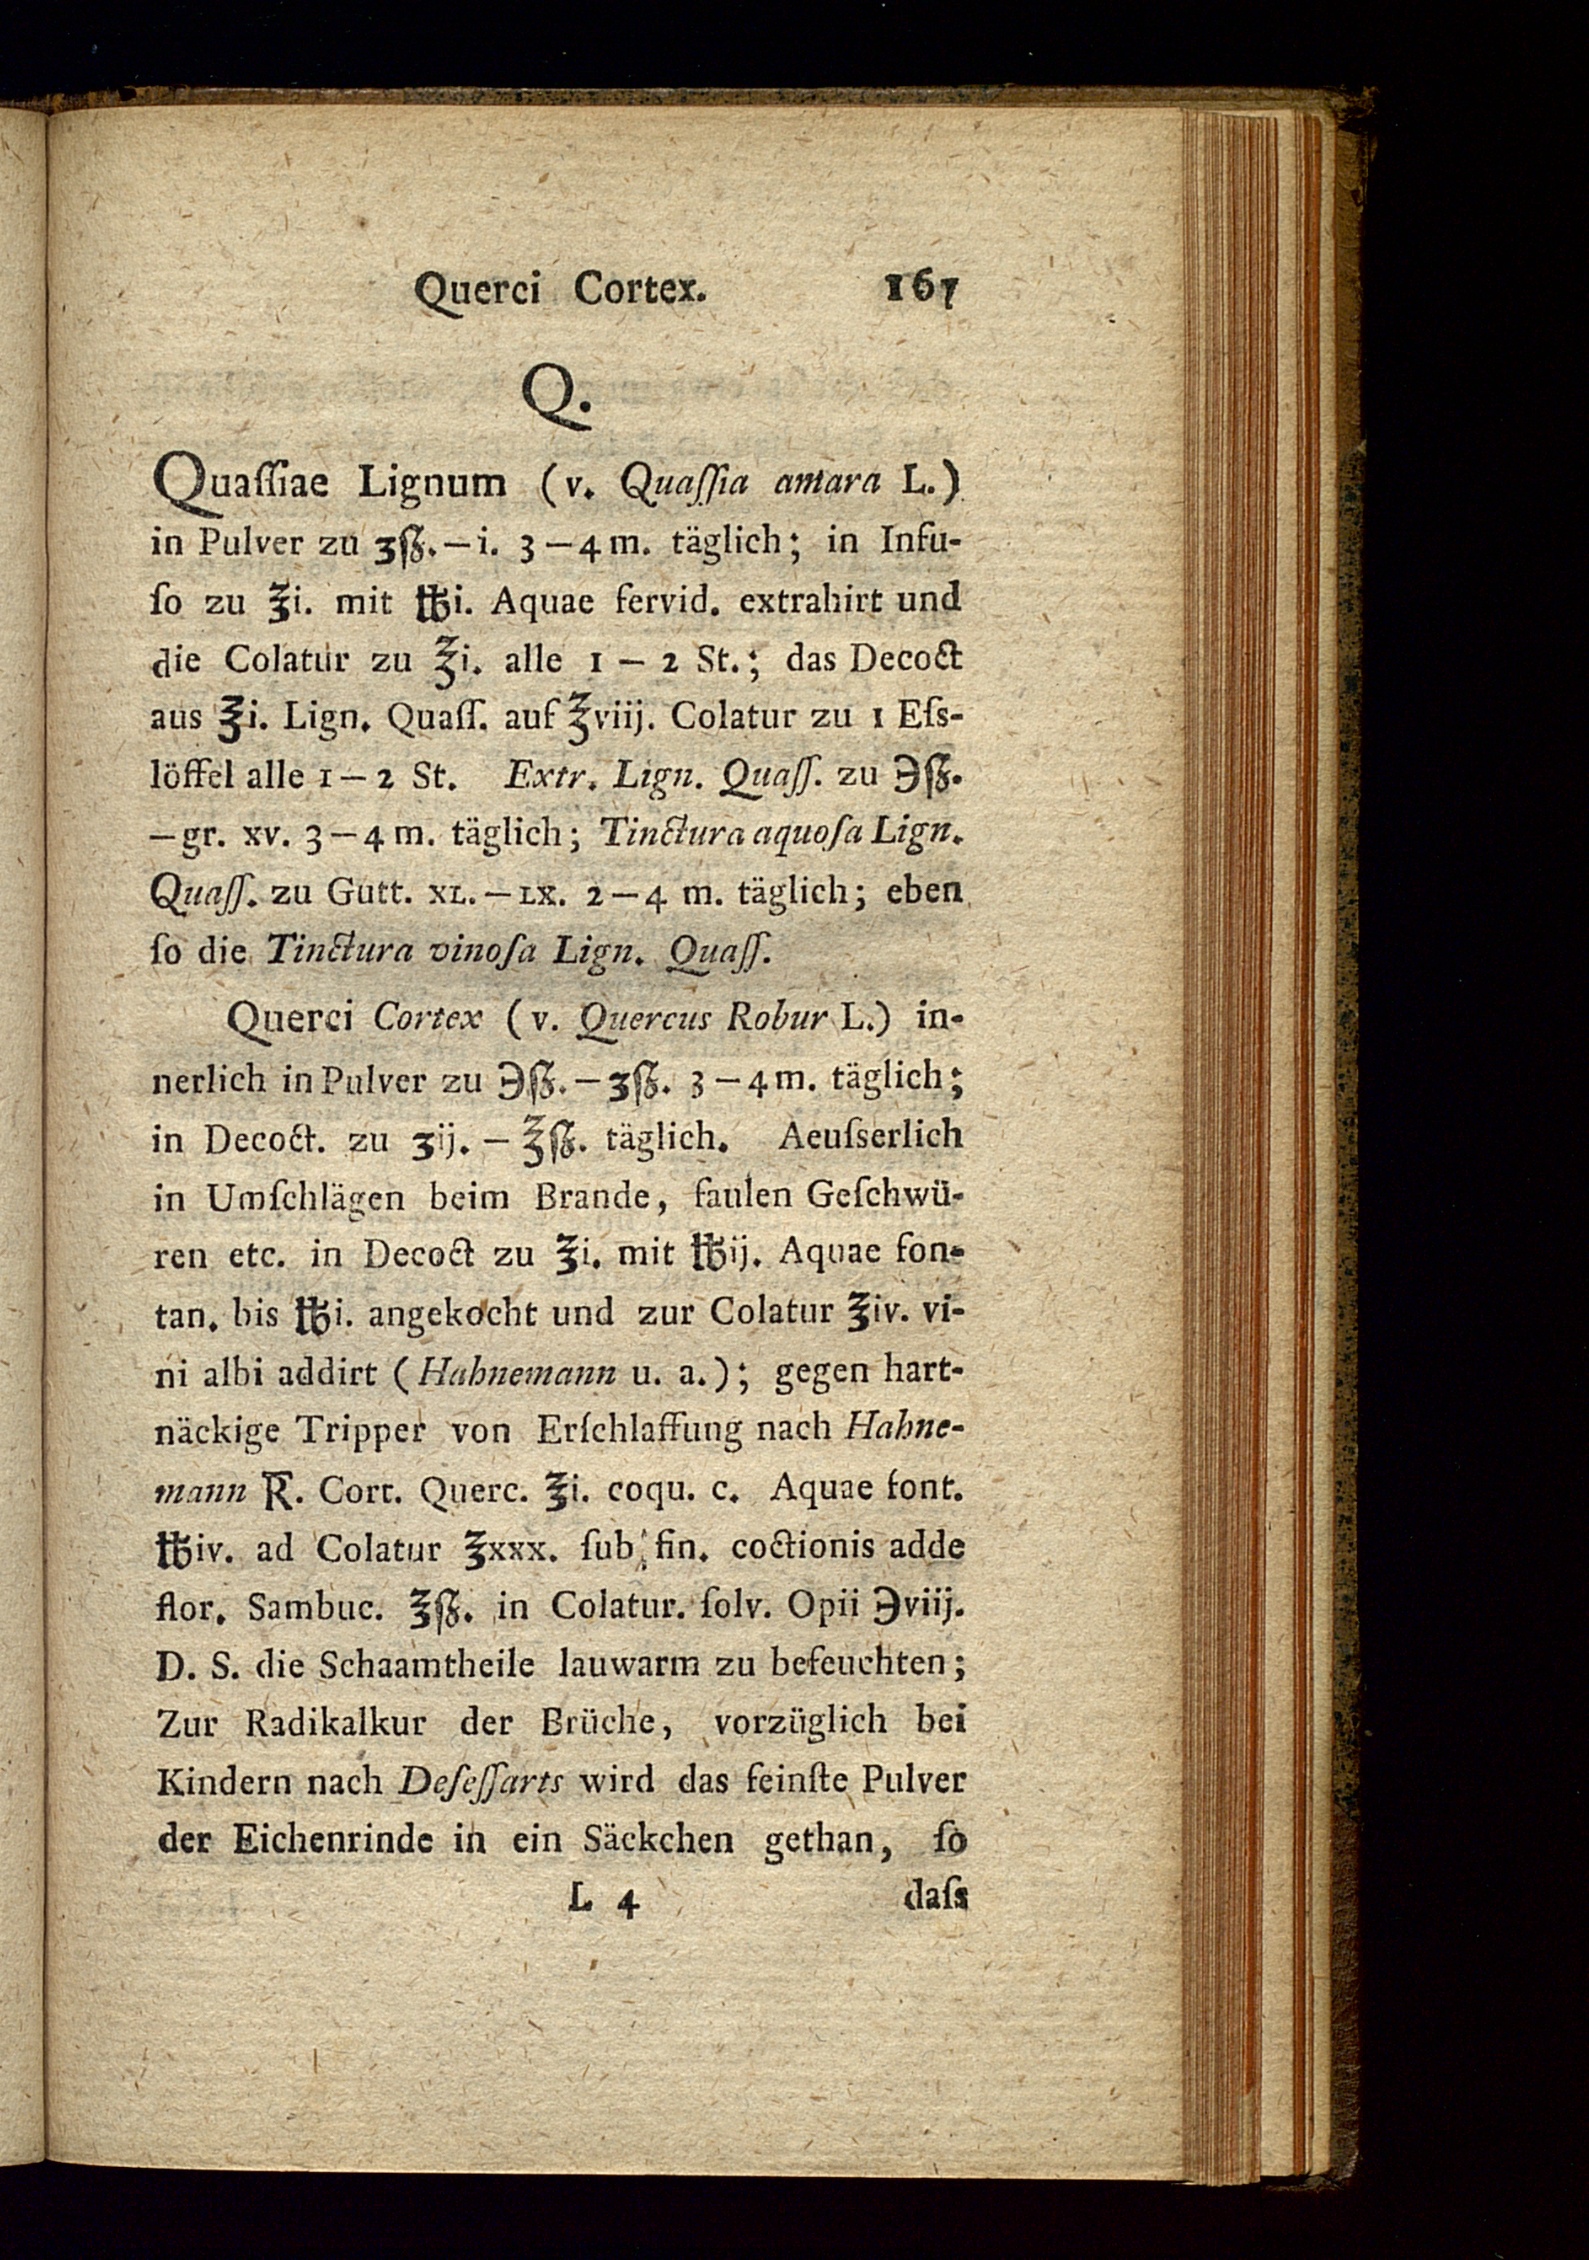 Querci Cortex. 167
Q.
Quaſſiae Lignum (v. Quaſſia amara L.)
in Pulver zu ʒſß.—i. 3—4 m. täglich; in Infu-
ſo zu ℥i. mit ℔i. Aquae fervid. extrahirt und
die Colatur zu ℥i. alle 1 — 2 St.; das Decoct
aus ℥i. Lign. Quaſſ. auf ℥viij. Colatur zu 1 Eſs-
löffel alle 1—2 St. Extr. Lign. Quaſſ. zu ℈ſß.
—gr. xv. 3—4 m. täglich; Tinctura aquoſa Lign.
Quaſſ. zu Gutt. XL.—LX. 2—4 m. täglich; eben
ſo die Tinctura vinoſa Lign. Quaſſ.
Querci Cortex (v. Quercus Robur L.) in-
nerlich in Pulver zu ℈ſß.—ʒſß. 3—4 m. täglich;
in Decoct. zu ʒij. — ℥ſß. täglich. Aeuſserlich
in Umſchlägen beim Brande, faulen Geſchwü-
ren etc. in Decoct zu ℥i. mit ℔ij. Aquae fon-
tan. bis ℔i. angekocht und zur Colatur ℥iv. vi-
ni albi addirt (Hahnemann u. a.); gegen hart-
näckige Tripper von Erſchlaffung nach Hahne-
mann ℞. Cort. Querc. ℥i. coqu. c. Aquae font.
℔iv. ad Colatur ℥xxx. ſub fin. coctionis adde
flor. Sambuc. ℥ſß. in Colatur. ſolv. Opii ℈viij.
D. S. die Schaamtheile lauwarm zu befeuchten;
Zur Radikalkur der Brüche, vorzüglich bei
Kindern nach Deſeſſarts wird das feinſte Pulver
der Eichenrinde in ein Säckchen gethan, ſo
L 4 daſs